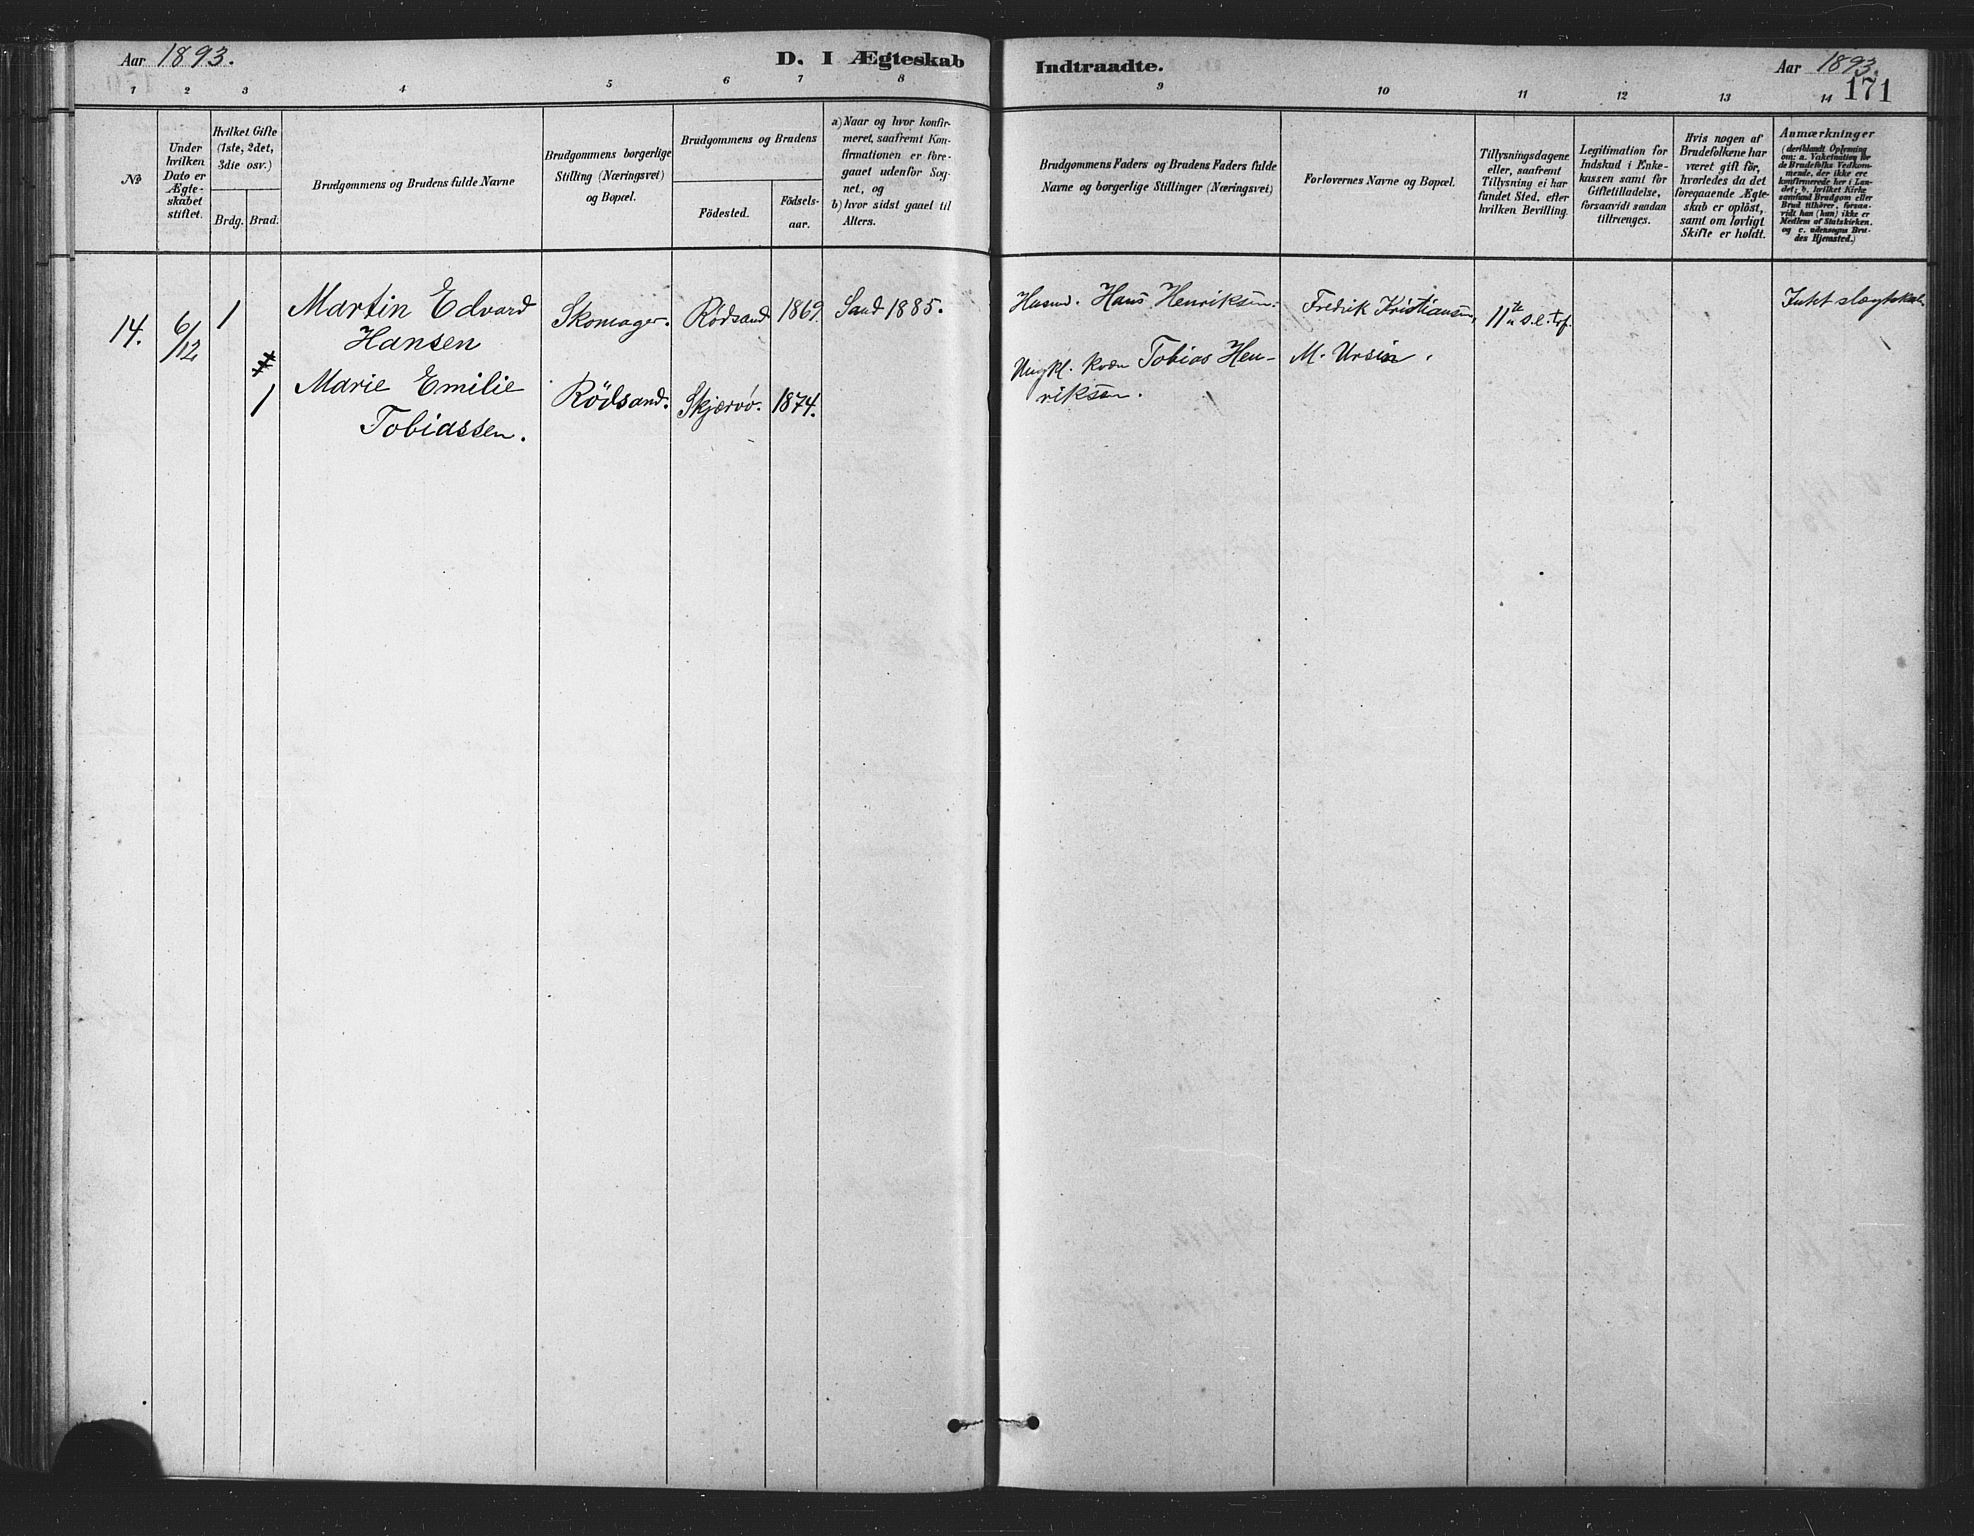 Aar 1893.
D. I Ægteskab
Indtraadte.
Aar 1893.
171
1 2 3 4 5 6 7 8
9 10 11 12 13 14
№
Under
hvilken
Dato er
Ægte-
skabet
stiftet.
Hvilket Gifte
(1ste, 2det,
3die osv.)
Brdg.
Brud.
Brudgommens og Brudens fulde Navne
Brudgommens borgerlige
Stilling (Næringsvei)
og Bopæl.
Brudgommens og Brudens
Födested.
Födsels-
aar.
a) Naar og hvor konfir-
meret, saafremt Kon-
firmationen er fore-
gaaet udenfor Sog-
net, og
b) hvor sidst gaaet til
Alters.
Brudgommens Faders og Brudens Faders fulde
Navne og borgerlige Stillinger (Næringsvei)
Forlovernes Navne og Bopæl.
Tillysningsdagene
eller, saafremt
Tillysning ei har
fundet Sted, efter
hvilken Bevilling.
Legitimation for
Indskud i Enke-
kassen samt for
Giftetilladelse,
forsaavidt saadan
tiltrænges.
Hvis nogen af
Brudefolkene har
været gift för,
hvorledes da det
foregaaende Ægte-
skab er oplöst,
samt om lovligt
Skifte er holdt.
Anmærkninger
(deriblandt Oplysning
om: a. Vakcination for
de Brudefolks Vedkom-
mende, der ikke ere
konfirmerede her i Lan-
det; b. hvilket Kirke-
samfund Brudgom eller
Brud tilhörer, forsaa-
vidt han (hun) ikke er
Medlem af Statskirken,
og c. udensogns Bru-
des Hjemsted.)
14.
6/12
1
Martin Edvard
Hansen
Skomager.
Rødsand
1869.
Sand 1885.
Husmd. Hans Henriksen.
Fredrik Kristiansen,
11te s.e. trf.
Intet slægtskab
1
Marie Emilie
Tobiassen.
Rödsand.
Skjærvø.
1874.
Ungkl. kvæn Tobias Hen-
riksen.
M. Ursin.